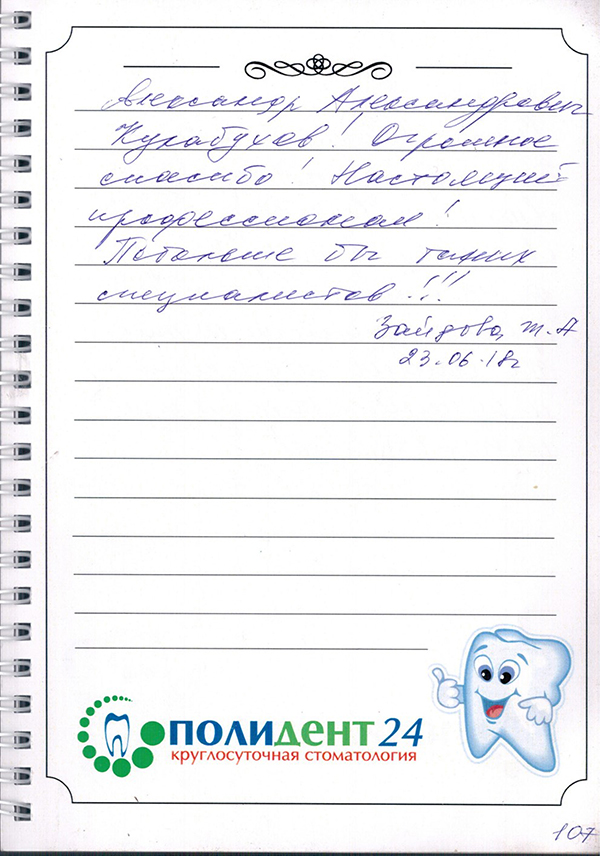 Александр Александрович
Курабухов! Огромное
спасибо! Настоящий
профессионал!
Побольше бы таких
специалистов!!!
Зайдова, т. А
23.06.18г
ПОЛИДЕНТ 24
круглосуточная стоматология
107